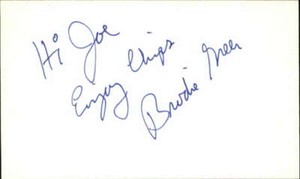 Hi Joe
Enjoy Chips
Brodie Greer